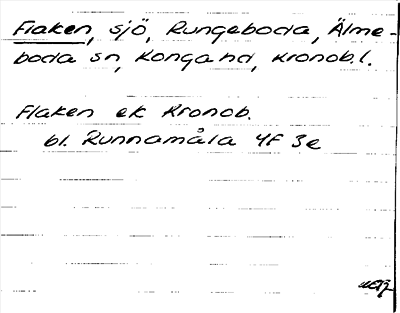 Flaken, sjö, Rungeboda, Älme-
boda sn, Konga hd, Kronob.l.
Flaken ek Kronob.
bl. Runnamåla 4F 3e